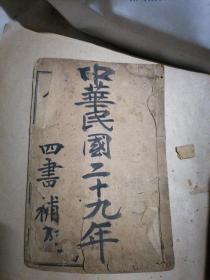 中華民國二十九年
四書補